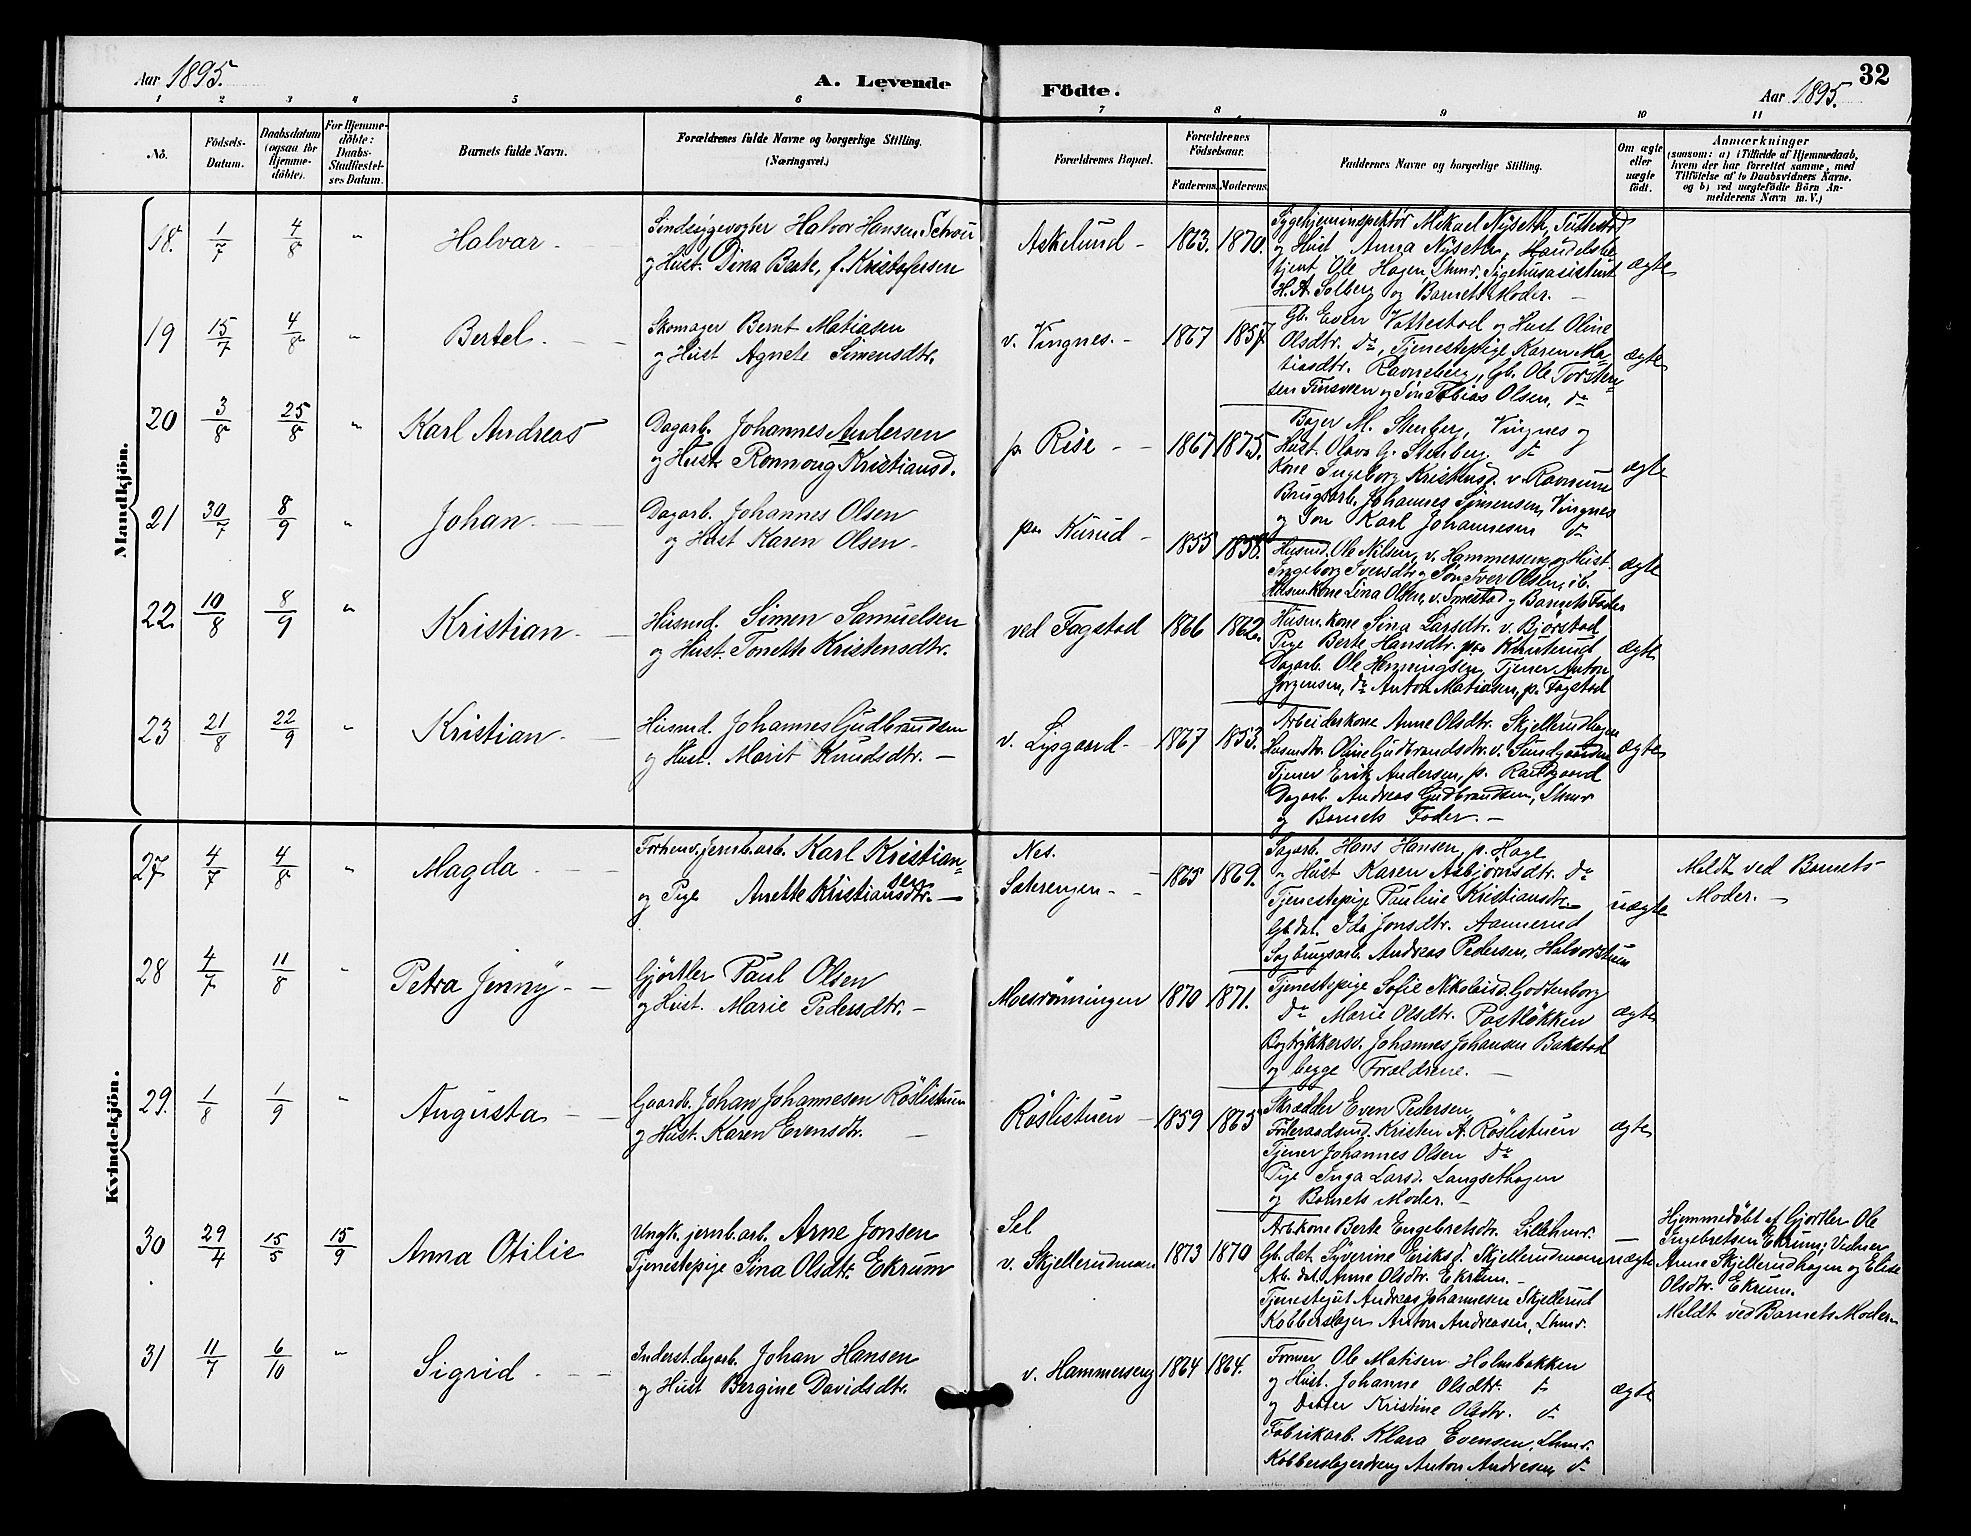 32
Aar 1895.
A. Levende
Födte.
Aar 1895.
1 2 3 4 5 6 7 8 9 10 11
No.
Födsels-
Datum.
Daabsdatum
(ogsaa for
Hjemme-
döbte).
For Hjemme-
döbte:
Daabs-
Stadfæstel-
ses Datum.
Barnets fulde Navn.
Forældrenes fulde Navne og borgerlige Stilling.
(Næringsvei.)
Forældrenes Bopæl.
Forældrenes
Födselsaar.
Faderens. Moderens.
Faddernes Navne og borgerlige Stilling.
Om ægte
eller
uægte
födt.
Anmærkninger
(saasom: a) i Tilfælde af Hjemmedaab,
hvem der har forrettet samme, med
Tilföielse af to Daabsvidners Navne,
og b) ved uægtefödte Börn An-
melderens Navn m. V.)
Mandkjön.
18. 1/7 4/8 " Halvar
Sindssygevogter Halvor Hansen
og Hust. Dina Beate, f. Kristofersen
Askelund 1863. 1870.
Sygehjeminspektör Mikael Nyseth,
og Hust Anna Nyseth, Handelsbe
tjent Ole Hagen, Lhmr. Sygehusasistent
H. A. Solberg og Barnets Moder.
ægte
19 15/7 4/8 " Bertel.
Skomager Bernt Matiasen
og Hust Agnete Simensdtr.
v. Vingnes. 1867 1857.
Gb. Even Vottestad og Hust Oline
Olsdtr. do, Tjenestepige Karen Ma-
tiasdtr. Ravneberg, Gb. Ole Torsten-
sen og Søn Tobias Olsen, do
ægte
20 3/8 25/8 " Karl Andreas
Dagarb. Johannes Andersen
og Hust Ronnoug Kristiansd.
p. Rise 1867 1875.
Bager M. Stenberg, Vingnes og
Hust. Olava G. Stenberg. do
Kone Ingeborg Kristensd. v. Ravnum
Brugsarb. Johannes Simensen, Vingnes
og Søn Karl Johannesen do
ægte
21 30/7 8/9 " Johan.
Dagarb. Johannes Olsen
og Hust Karen Olsen.
paa Kurud 1855 1858.
Husmd. Ole Nilsen, v. Hammerseng og Hust.
Ingeborg Iversdtr og Søn Iver Olsen, ib.
Kone Lina Olsen, v. og Barnets Fader
ægte
22 10/8 8/9 " Kristian.
Husmd. Simen Samuelsen
og Hust. Tonette Kristensdtr.
ved Fagstad 1866 1862.
Husm. kone Sina Larsdtr. v. Bjørstad
Pige Berte Hansdtr. paa Knuterud
Dagarb. Ole Henningsen, Tjener Anton
Jørgensen, do Anton Matiasen, p. Fagstad
ægte
23 21/8 22/9 " Kristian.
Husmd. Johannes Gudbrandsen
og Hust. Marit Knudsdtr.
v. Lysgaard 1867 1853.
Arbeiderkone Anne Olsdtr. Skjellerudhagen
Husmdtr. Oline Gudbrandsdtr. v. Sundgaarden
Tjener Erik Andersen, p.
Dagarb. Andreas Gudbrandsen, Lhmr
og Barnets Fader.
ægte
Kvindekjön.
27 4/7 4/8 " Magda
Forhenv. jernb.arb. Karl Kristian-
sen
og Pige Anette Kristiansdtr.
Nes.
Sæterengen 1865 1869.
Sagarb. Hans Hansen, p. Hage
og Hust Karen Asbjørnsdtr. do
Tjenestepige Pauline Kristiansdtr.
Gb.dat. Ida Jonsdtr. Aannerud
Sagbrugsarb. Andreas Pedersen, Halvorstuen
uægte
Meldt ved Barnets
Moder.
28 4/7 11/8 " Petra Jenny
Gjørtler Paul Olsen
og Hust. Marie Pedersdtr.
Moesrønningen 1870 1871.
Tjenestepige Sofie Nikolaisd. Godtenborg
do Marie Olsdtr. Postløkken
Bogtrykkersv. Johannes Johansen Bakstad
og begge Forældrene.
ægte
29. 1/8 1/9 " Augusta
Gaardb. Johan Johannesen Røslistuen
og Hust. Karen Evensdtr.
Røslistuen 1859 1865
Skrædder Even Pedersen
Føderaadsmd. Kristen A. Røslistuen
Tjener Johannes Olsen do
Pige Inga Larsd. Langsethagen
og Barnets Moder.
ægte
30 29/4 15/5 15/9 Anna Otilie
Ungk. jernb.arb. Arne Jonsen
Tjenestepige Sina Olsdtr. Ekrum
Sel
v. Skjellerudmoen 1873 1870
Arb.kone Berte Engebretsdtr. Lillehmr.
Gb.dat. Syverine Eriksd. Skjellerudmoen
Ab.dat. Anne Olsdtr. Ekrum.
Tjenestegut Andreas Johannesen Skjellerud
Kobberslager Anton Andreasen, Lhmr.
uægte
Hjemmedøbt af Gjørtler Ole
Ingebretsen Ekrum; Vidner
Anne Skjellerudhagen og Elise
Olsdtr. Ekrum.
Meldt ved Barnets Moder
31 11/7 6/10 " Sigrid
Inderst. dagarb. Johan Hansen
og Hust Bergine Davidsdtr.
v. Hammerseng 1864 1864.
Former Ole Matisen Holmbakken
og Hust. Johanne Olsdtr. do
og Datter Kristine Olsdtr. do
Fabrikarb. Klara Evensen, Lhmr.
Kobberslagerdreng Anton Andresen, do
ægte